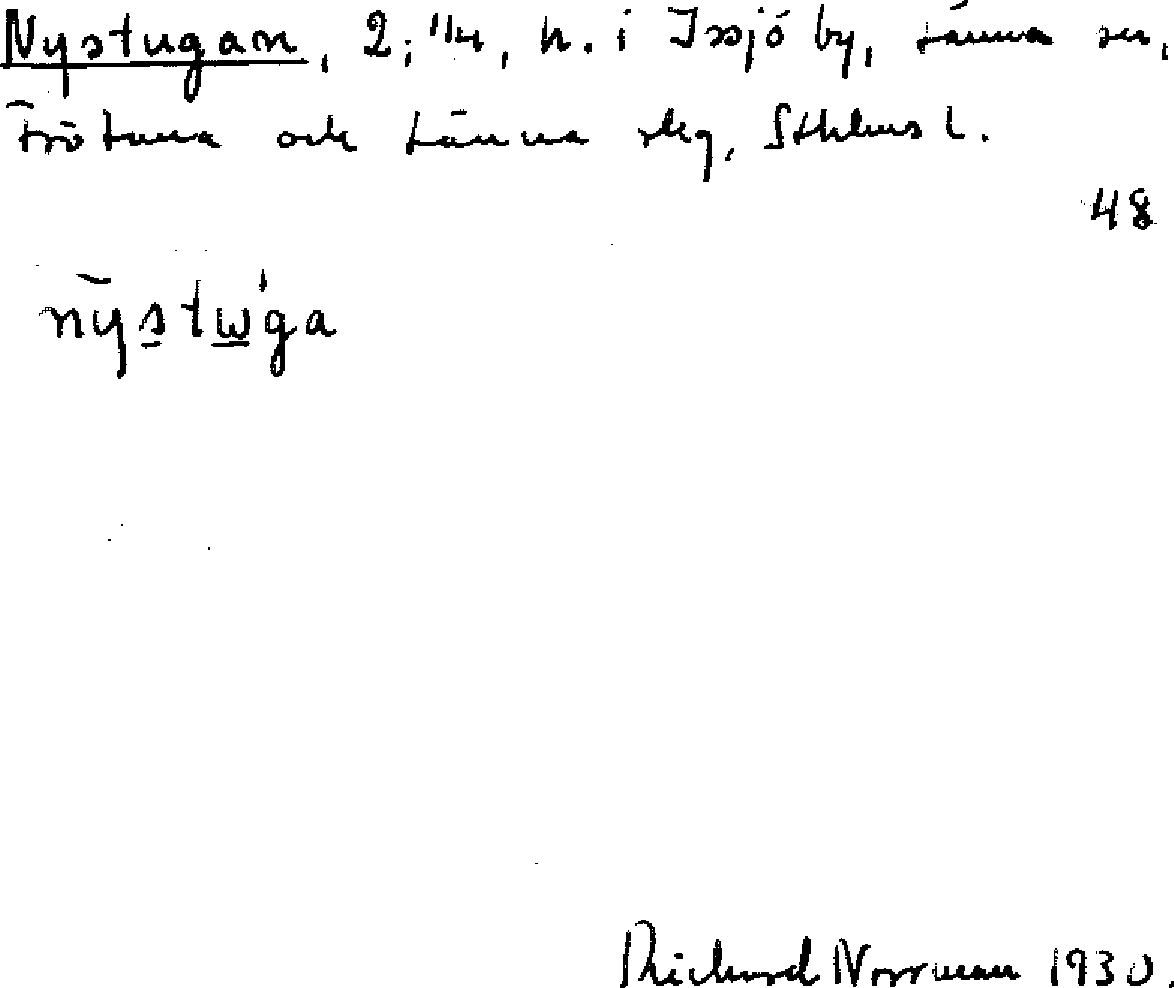 Nystugan, 2; 1/4, h. i Issjö by, Länna sn,
Frötuna och Länna skg, Sthlms l.
48
nyst​wga
Richard Norrman 1930.